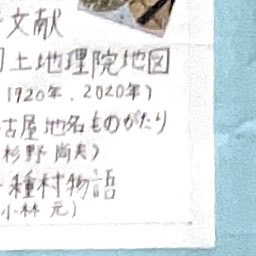 文献
土地理院地図
1920年、2020年)
古屋地名ものがたり
杉野尚夫)
種村物語
小林 元)